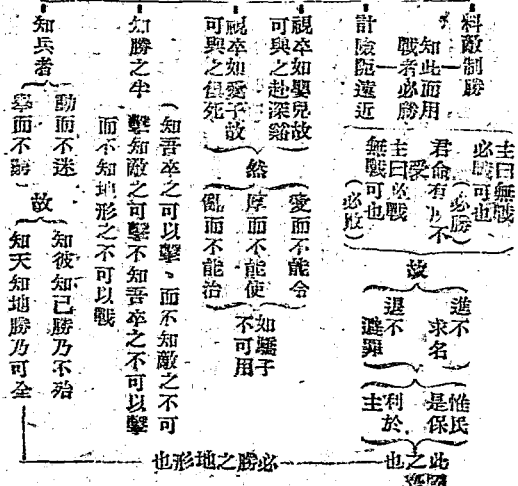 料敵制勝
計險阨遠近
知此而用
戰者必勝
主曰無戰
必戰可也
(必勝)
君命有所不
愛
主曰必戰
無戰可也
(必敗)
故
進不
求名
退不
避罪
惟民
是保
利於
主
此國
之
也
視卒如嬰兒故
可與之赴深谿
視卒如愛子故
可與之俱死
然
愛而不能令
厚而不能使
亂而不能治
如驕子
不可用
知勝之半
(知吾卒之可以擊、而不知敵之不可
擊知敵之可擊不知吾卒之不可以擊
而不知地形之不可以戰
知兵者
動而不迷
舉而不窮
故
知彼知己勝乃不殆
知天知地勝乃可全
必勝之地形也